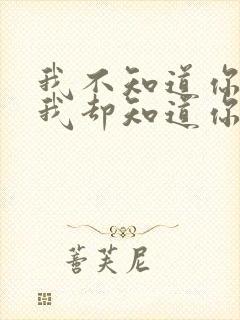 我不知道你
我却知道你
蔷芙尼